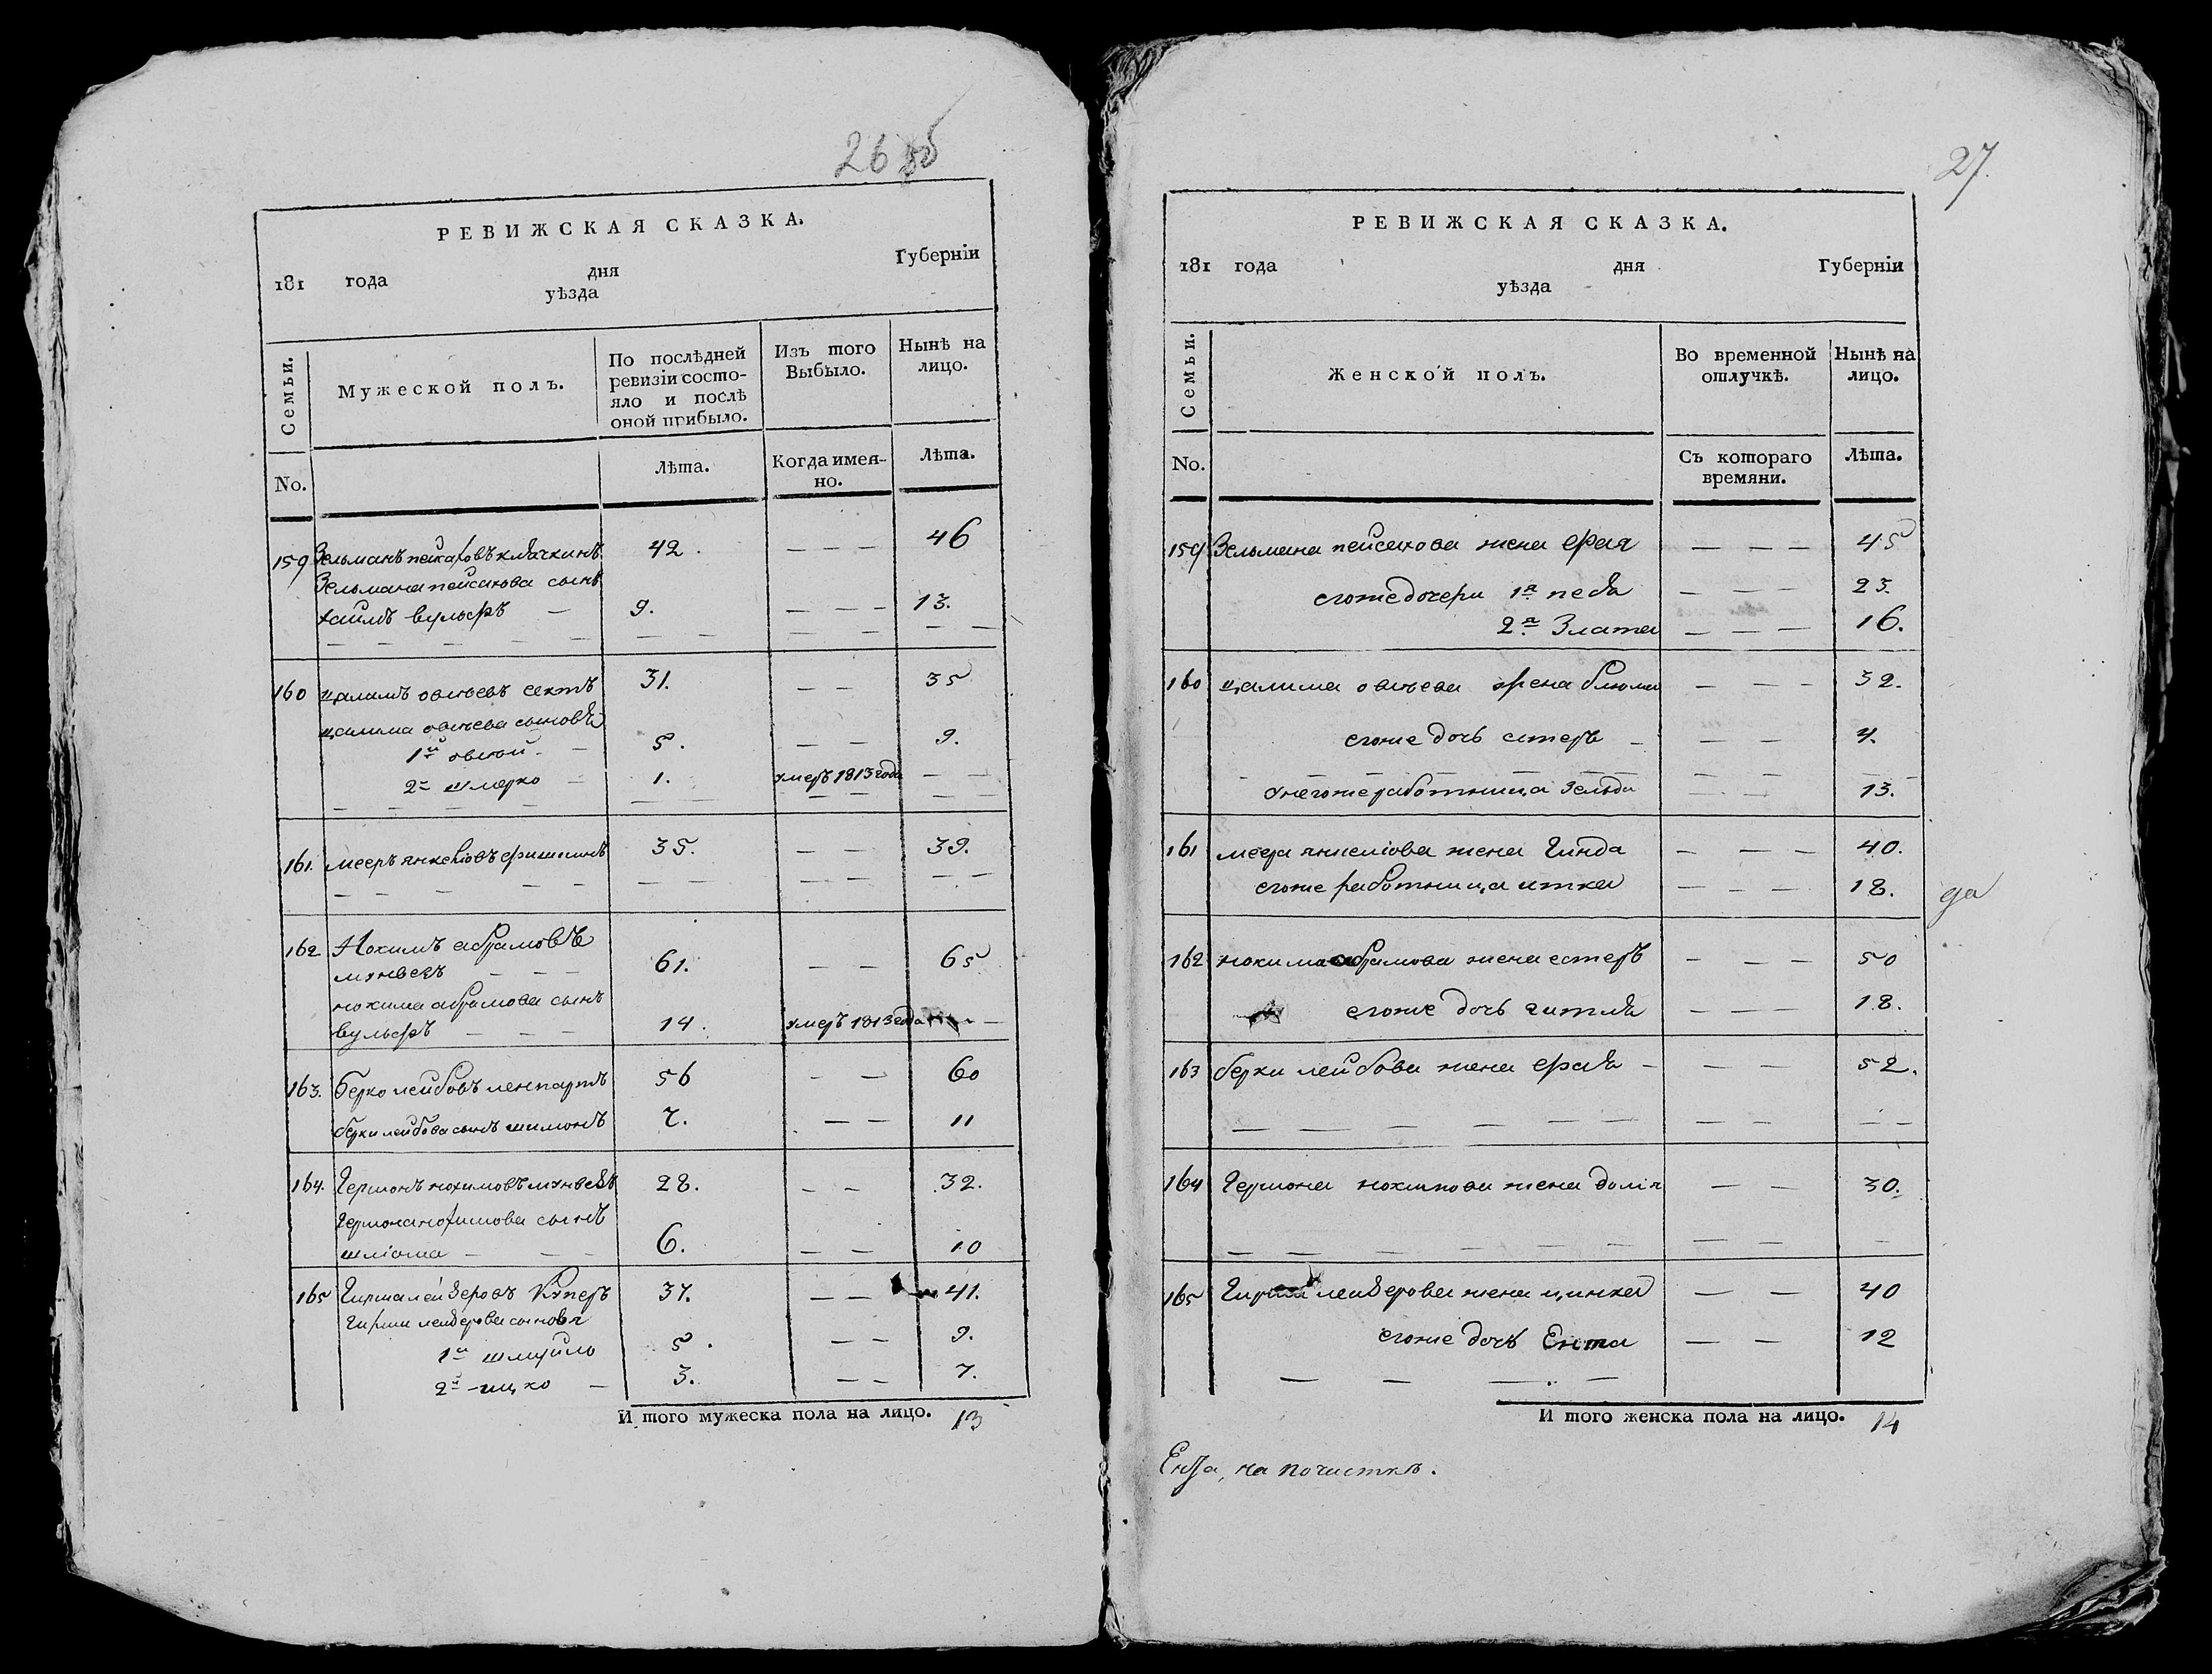 26 об
РЕВИЖСКАЯ СКАЗКА.
181 года дня Губернїи
уѣзда
Семьи. Мужеской полъ. По послѣдней ревизїи состояло и послѣ оной прибыло. Изъ того Выбыло. Нынѣ на лицо.
No. Лѣта. Когда именно. Лѣта.
159 Зельманъ пейсаховъ клячкинъ 42. — — — 46
Зельмана пейсахова сынъ
хаимъ вульфъ — 9. — — — 13.
160 цалимъ овсѣевъ 31. — — 35
цалима овсѣева сыновья
1й овсей — 5. — — 9.
2й шмерко — 1. умеръ 1813 года — —
161. мееръ янкелiовъ фишкинъ 35. — — 39.
162 Нохимъ абрамовъ
— — — 61. — — 65
нохима абрамова сынъ
вульфъ — — — 14. умеръ 1813 года —
163. Берко лейбовъ 56 — — 60
берки лейбова сынъ шимонъ 7. — — 11
164. Гершонъ нохимовъ 28. — — 32.
гершона нохимова сынъ
шлiома — — — 6. — — 10
165 Гирша лейзеровъ Куперъ 37. — — 41.
гирши лейзерова сыновья
1й шмуйло 5. — — 9.
2й ицко — 3. — — 7.
И того мужеска пола на лицо. 13
27.
РЕВИЖСКАЯ СКАЗКА.
181 года дня Губернїи
уѣзда
Семьи. Женской полъ. Во временной отлучкѣ. Нынѣ на лицо.
No. Съ котораго времяни. Лѣта.
159 Зельмана пейсахова жена фрая — — — 45
егоже дочери 1я песя — — — 23.
2я Злата — — — 16.
160 цалима овсѣева жена блюма — — — 32.
егоже дочь естеръ — — — 4.
унегоже работница зельда — — 13.
161 меера янкелiова жена Гинда — — — 40.
егоже работница итка — — — 18.
да
162 нохима абрамова жена естеръ — — — 50
егоже дочь гитля — — — 18.
163 берки лейбова жена фрая — — — — 52.
164 Гершона нохимова жена — — 30.
165 Гирши лейзерова жена цинка — — 40
егоже дочь Ента — — 12
И того женска пола на лицо. 14
Ента, на почисткѣ.